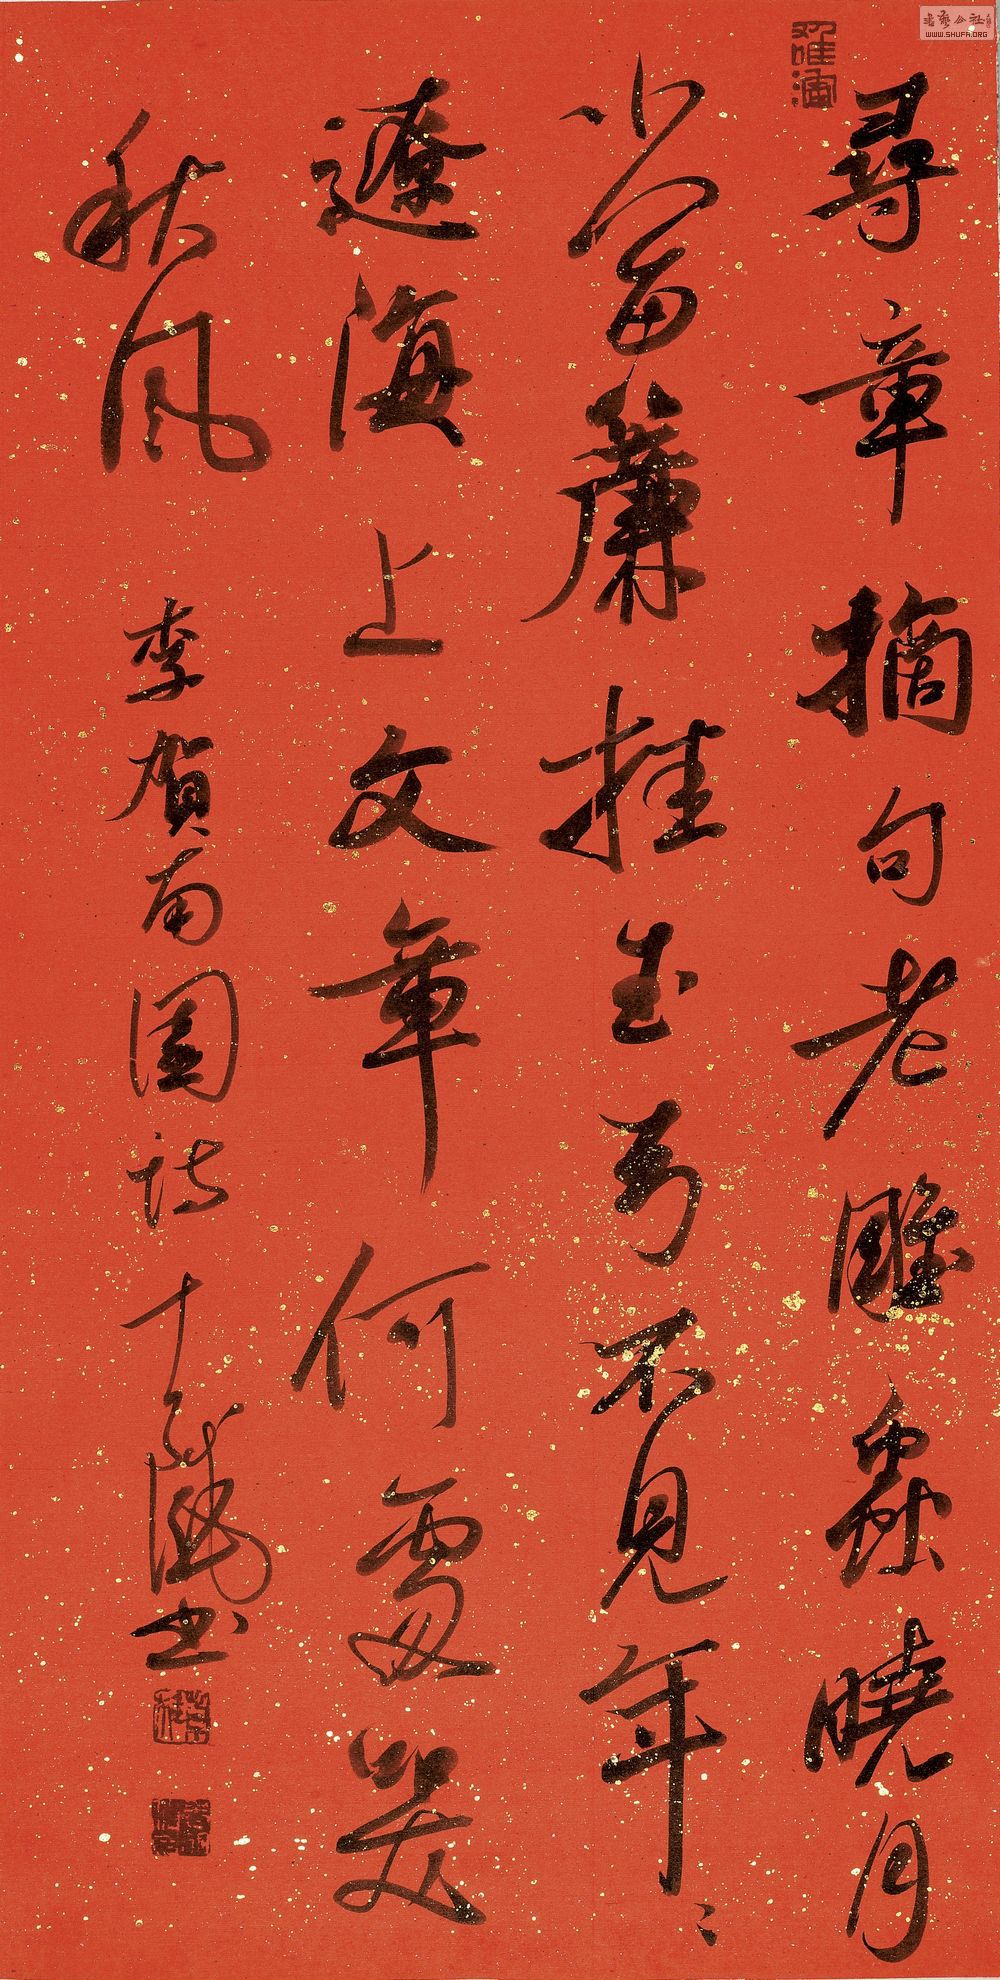 尋章摘句老雕蟲曉月
當簾挂玉弓不見年〻
遼海上文章何處哭
秋風
李賀南園詩
書
書藝公社
WWW.SHUFA.ORG